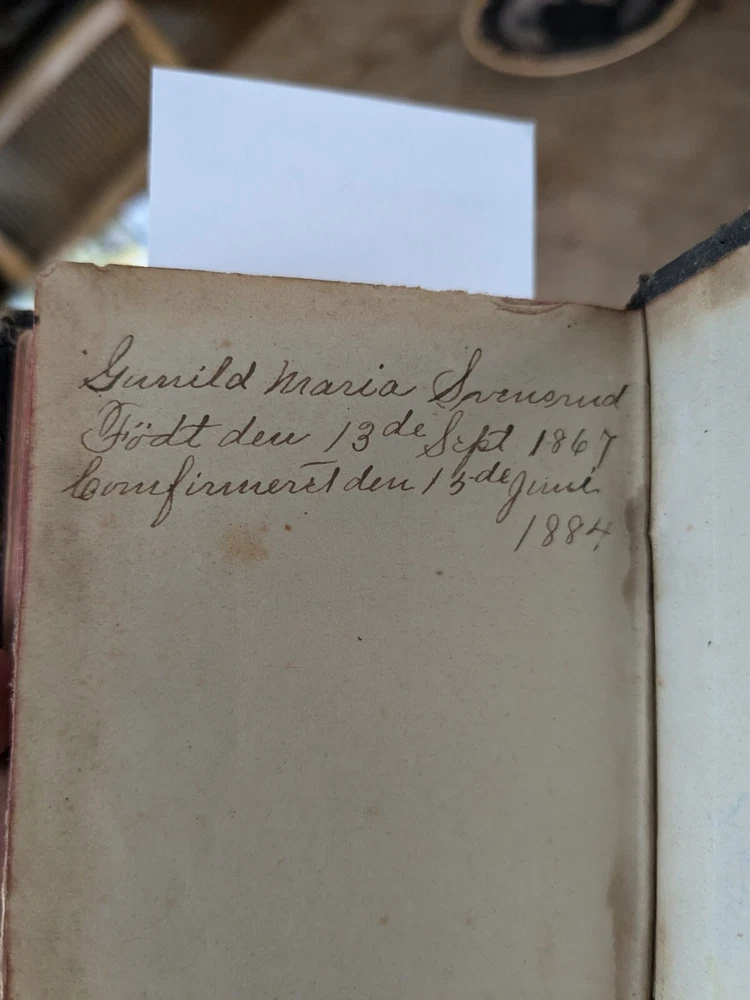 Gunild Maria Svenerud
Födt den 13de Sept 1867
Comfirmeret den 15de Juni
1884